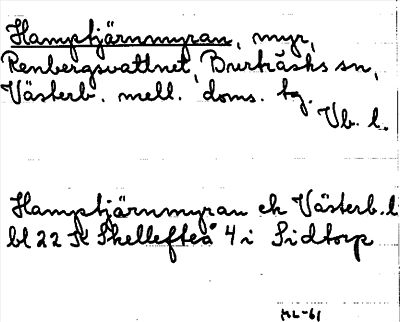 Hamptjärnmyran, myr,
Renbergsvattnet, Burträsks sn,
Västerb. mell. doms. tg.
Vb. l.
Hamptjärnmyran ek Västerb. l
bl 22 SK Skellefteå 4 i Sidtorp
ML-61